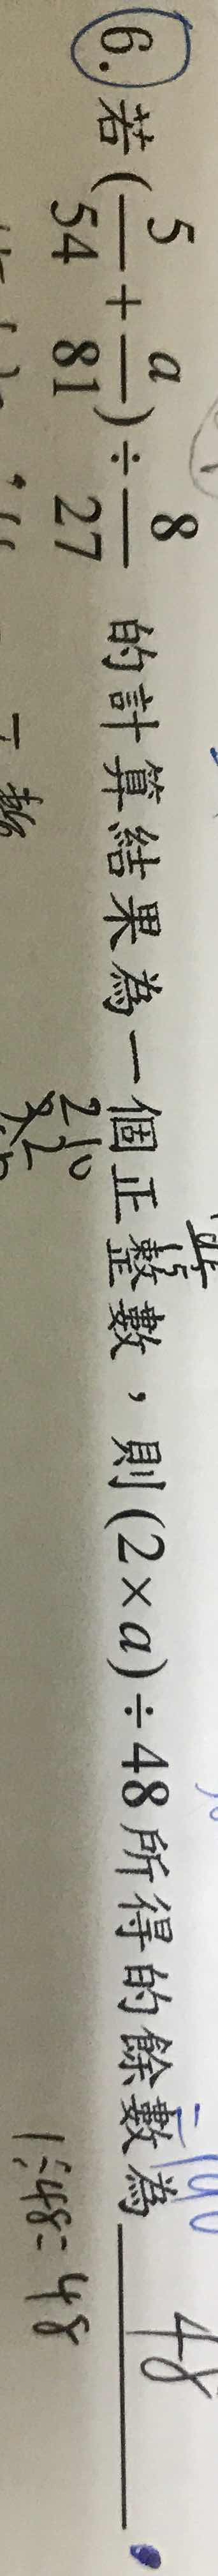 6. 若(5/54 + a/81) ÷ 8/27 的計算結果為一個正整數，則(2×a)÷48所得的餘數為 48 。
1÷48=48